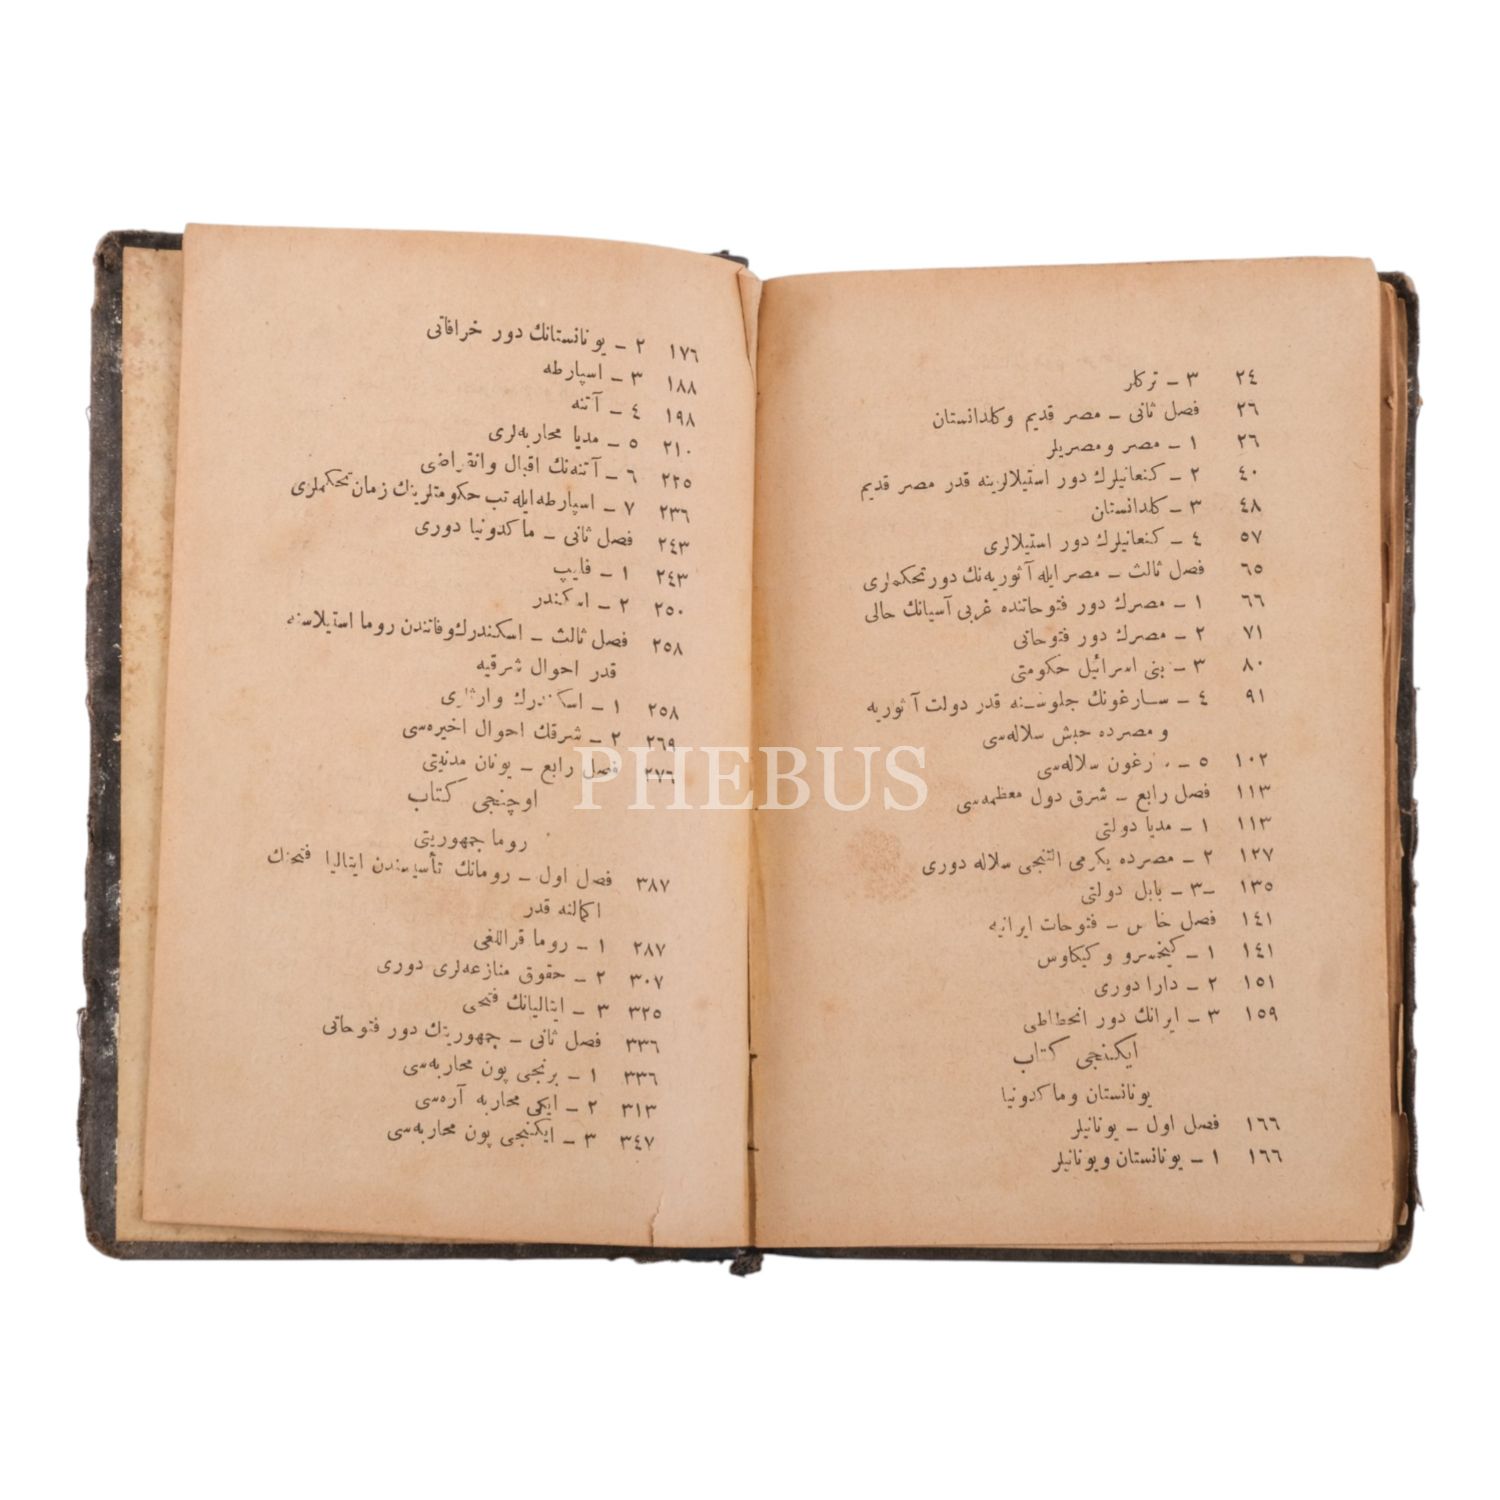 ٢٤ ٣ ـ تركلر
٢٦ فصل ثانى ـ مصر قديم وكلدانستان
٢٦ ١ ـ مصر ومصريلر
٤٠ ٢ ـ كنعانيلرك دور استيلالرينه قدر مصر قديم
٤٨ ٣ ـ كلدانستان
٥٧ ٤ ـ كنعانيلرك دور استيلالرى
٦٥ فصل ثالث ـ مصر ايله آثوريه‌نك دور تحكملرى
٦٦ ١ ـ مصرك دور فتوحاتنده غربى آسيانك حالى
٧١ ٢ ـ مصرك دور فتوحاتى
٨٠ ٣ ـ بنى اسرائيل حكومتى
٩١ ٤ ـ سارغونك جلوسنه قدر دولت آثوريه
و مصرده حبش سلاله‌سى
١٠٢ ٥ ـ رغون سلاله‌سى
١١٣ فصل رابع ـ شرق دول معظمه‌سى
١١٣ ١ ـ مديا دولتى
١٢٧ ٢ ـ مصرده يكرمى التنجى سلاله دورى
١٣٥ ـ٣ ـ بابل دولتى
١٤١ فصل خامس ـ فتوحات ايرانيه
١٤١ ١ ـ كيخسرو و كيكاوس
١٥١ ٢ ـ دارا دورى
١٥٩ ٣ ـ ايرانك دور انحطاطى
ايكنجى كتاب
يونانستان وماكدونيا
١٦٦ فصل اول ـ يونانيلر
١٦٦ ١ ـ يونانستان ويونانيلر
١٧٦ ٢ ـ يونانستانك دور خرافاتى
١٨٨ ٣ ـ اسپارطه
١٩٨ ٤ ـ آتنه
٢١٠ ٥ ـ مديا محاربه‌لرى
٢٢٥ ٦ ـ آتنه‌نك اقبال وانقراضى
٢٣٦ ٧ ـ اسپارطه ايله تب حكومتلرينك زمان تحكملرى
٢٤٣ فصل ثانى ـ ماكدونيا دورى
٢٤٣ ١ ـ فليپ
٢٥٠ ٢ ـ اسكندر
٢٥٨ فصل ثالث ـ اسكندرك وفاتندن روما استيلاسنه
قدر احوال شرقيه
٢٥٨ ١ ـ اسكندرك وارثلرى
٢٦٩ ٢ ـ شرقك احوال اخيره‌سى
٢٧٦ فصل رابع ـ يونان مدنيتى
اوچنجى كتاب
روما جمهوريتى
٣٨٧ فصل اول ـ رومانك تأسيسندن ايتاليا فتحنك
اكمالنه قدر
٢٨٧ ١ ـ روما قراللغى
٣٠٧ ٢ ـ حقوق منازعه‌لرى دورى
٣٢٥ ٣ ـ ايتاليانك فتحى
٣٣٦ فصل ثانى ـ جمهوريتك دور فتوحاتى
٣٣٦ ١ ـ برنجى پون محاربه‌سى
٣١٣ ٢ ـ ايكى محاربه آره‌سى
٣٤٧ ٣ ـ ايكنجى پون محاربه‌سى
PHEBUS